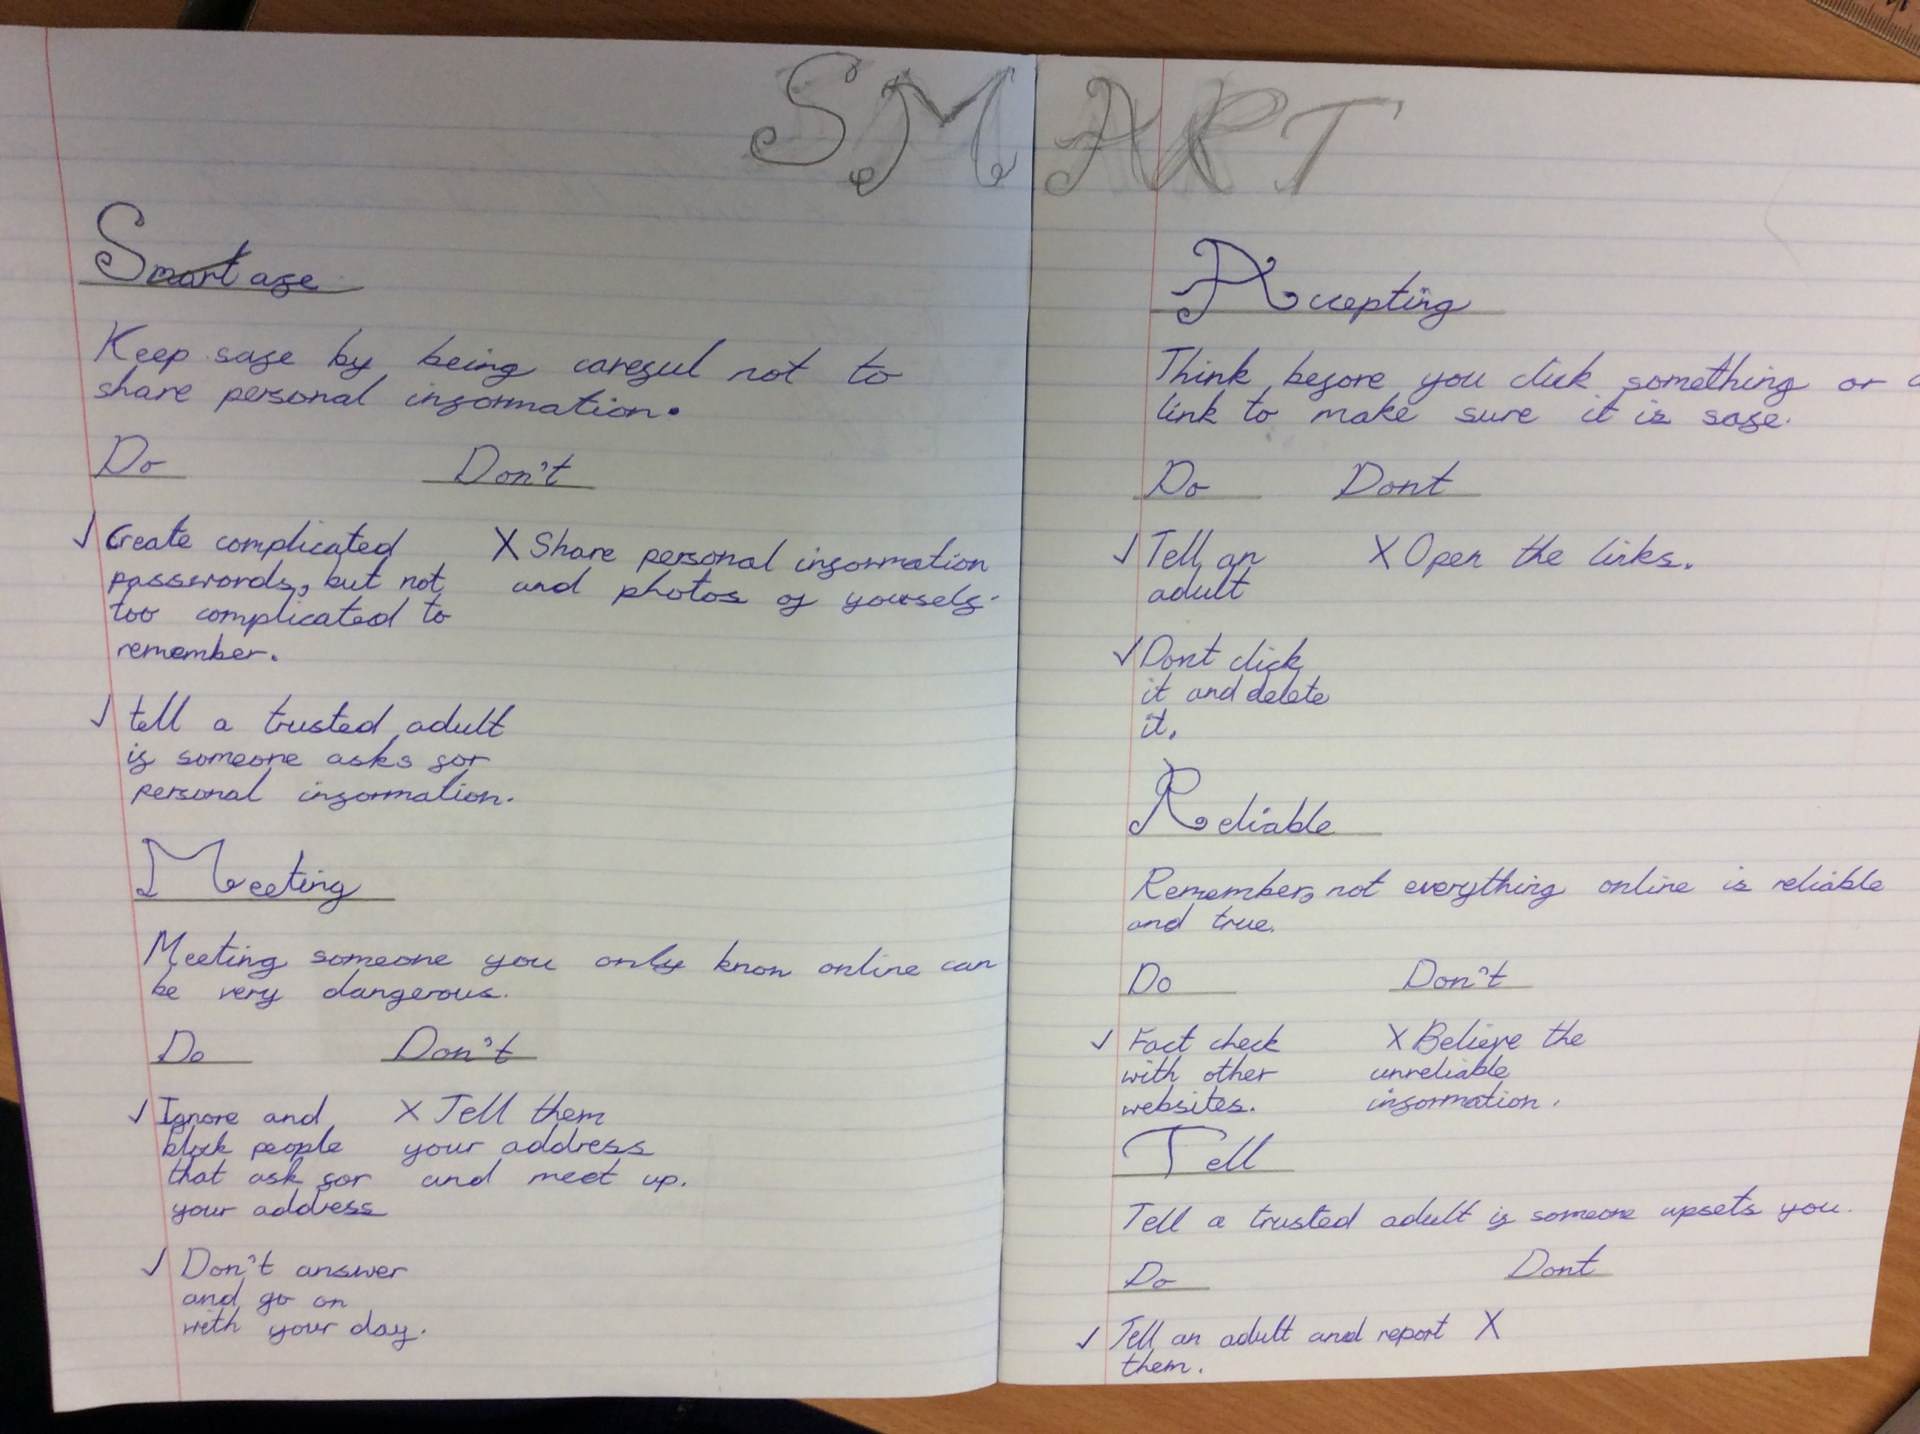 SMART
Smart afe
Keep safe by being careful not to
share personal information.
Do Don't
✓ Create complicated
passwords, but not
too complicated to
remember.
X Share personal information
and photos of yourself.
✓ tell a trusted adult
if someone asks for
personal information.
Meeting
Meeting someone you only know online can
be very dangerous.
Do Don't
✓ Ignore and
block people
that ask for
your address
X Tell them
your address
and meet up.
✓ Don't answer
and go on
with your day.
Accepting
Think before you click something or a
link to make sure it is safe.
Do Dont
✓ Tell an
adult
X Open the links.
✓ Dont click
it and delete
it.
Reliable
Remember, not everything online is reliable
and true.
Do Don't
✓ Fact check
with other
websites.
X Believe the
unreliable
information.
Tell
Tell a trusted adult if someone upsets you.
Do Dont
✓ Tell an adult and report X
them.